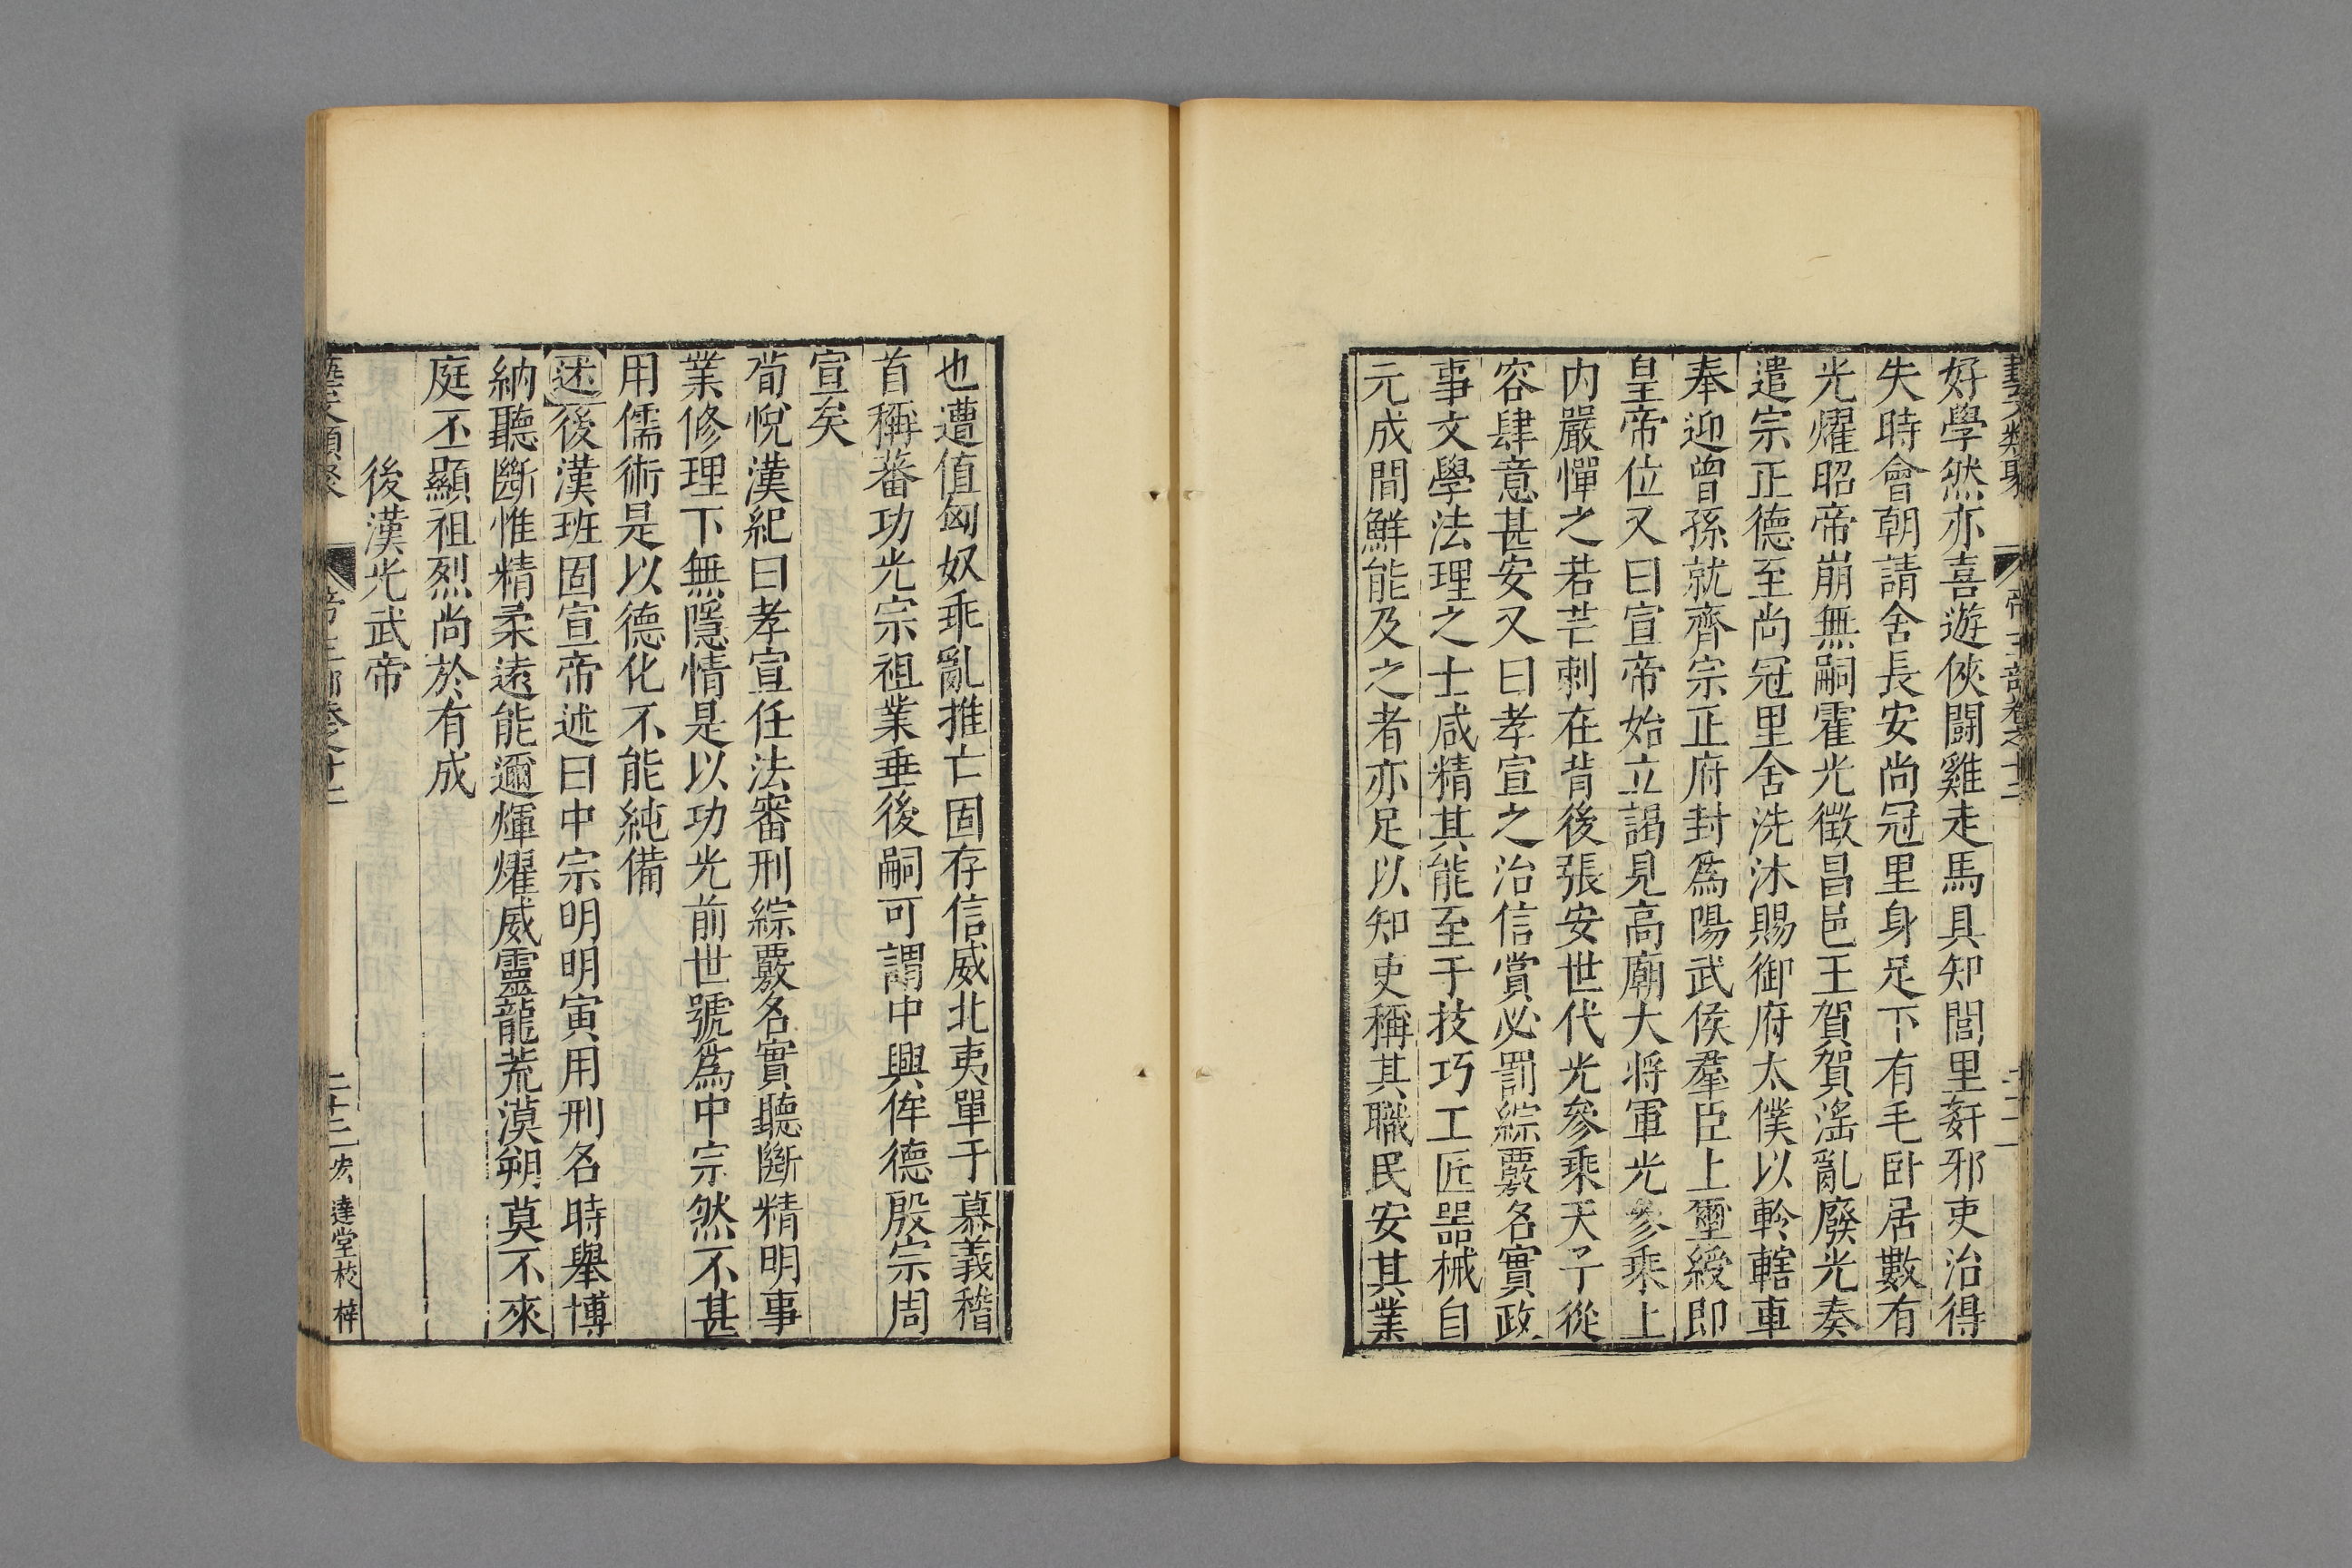 藝文類聚 帝王部卷之十二 二十二
好學然亦喜遊俠鬪雞走馬具知閭里姧邪吏治得
失時會朝請舍長安尚冠里身足下有毛卧居數有
光燿昭帝崩無嗣霍光徵昌邑王賀賀滛亂廢光奏
遣宗正德至尚冠里舍洗沐賜御府太僕以軨轄車
奉迎曾孫就齊宗正府封爲陽武侯羣臣上璽綬即
皇帝位又曰宣帝始立謁見高廟大將軍光參乘上
内嚴憚之若芒刺在背後張安世代光參乘天子從
容肆意甚安又曰孝宣之治信賞必罰綜覈名實政
事文學法理之士咸精其能至于技巧工匠噐械自
元成間鮮能及之者亦足以知吏稱其職民安其業
也遭值匈奴乖亂推亡固存信威北夷單于慕義稽
首稱蕃功光宗祖業垂後嗣可謂中興侔德殷宗周
宣矣
荀悅漢紀曰孝宣任法審刑綜覈名實聽斷精明事
業修理下無隱情是以功光前世號爲中宗然不甚
用儒術是以德化不能純備
述後漢班固宣帝述曰中宗明明寅用刑名時舉博
納聽斷惟精柔遠能邇煇燿威靈龍荒漠朔莫不來
庭丕顯祖烈尚於有成
後漢光武帝
藝文類聚 帝王部卷之十二 二十三 宏達堂校梓